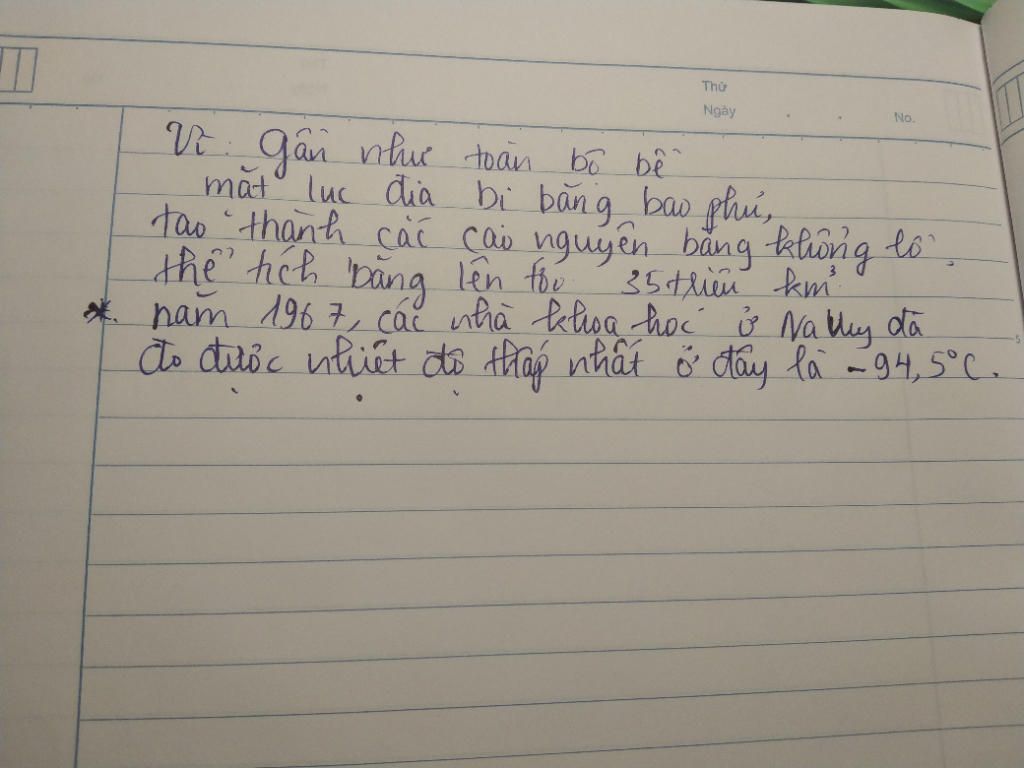 Thứ
Ngày . . No.
Vì: Gần như toàn bộ bề
mặt lục địa bị băng bao phủ,
tạo thành các cao nguyên băng khổng lồ.
thể tích băng lên tới 35 triệu km³
*. năm 1967, các nhà khoa học ở Na Uy đã
đo được nhiệt độ thấp nhất ở đây là -94,5°C.